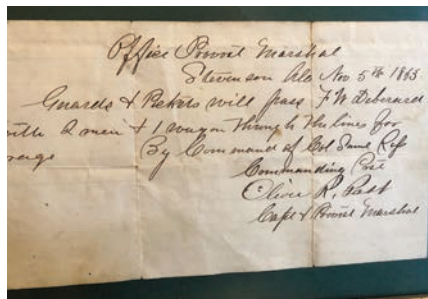 Office Provost Marshal
Stevenson Ala Nov 5th 1863
Guards & Pickets will pass F W Deberard
with 2 men & 1 wagon through the lines for
By Command of Col
Commanding Post
Oliver R. Post
Capt & Provost Marshal